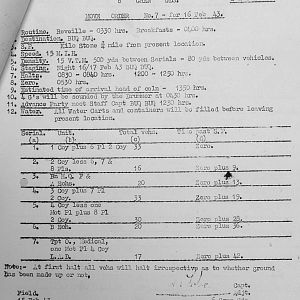 MOVE ORDER No.7 - for 16 Feb 43.
1. Routine. Reveille - 0330 hrs. Breakfasts - 0400 hrs.
2. Destination. BUQ BUQ.
3. S.P. Kile Stone ¼ mile from present location.
4. Speed. 15 M.I.H.
5. Density. 15 V.T.M. 500 yds between Serials - 80 yds between vehicles.
6. Staging. Night 16/17 Feb 43 BUQ BUQ.
7. Halts. 0830 - 0840 hrs 1200 - 1230 hrs
8. Zero. 0630 hrs.
9. Estimated time of arrival head of coln - 1350 hrs.
10. 4 G's will be sounded by the Drummer at 0430 hrs.
11. Advance Party meet Staff Capt BUQ BUQ 1230 hrs
12. Water. All Water Carts and containers will be filled before leaving
present location.
Serial. Unit. Total vehs. Time past S.P.
(a) (b) (c) (d)
1. 1 Coy plus 6 Pl 2 Coy 33 Zero.
2. 2 Coy less 6, 7 &
8 Plns. 16 Zero plus 9.
3. Bn H.Q. F &
A Echs. 20 Zero plus 13.
4. 3 Coy plus 7 Pl
2 Coy. 33 Zero plus 19.
5. 4 Coy less one
Mot Pl plus 8 Pl
2 Coy. 30 Zero plus 28.
6. B Ech. 20 Zero plus 36.
7. Tpt O., Medical,
one Mot Pl 4 Coy
L.A.D. 17 Zero plus 42.
Note:- At first halt all vehs will halt irrespective as to whether ground
has been made up or not.
Capt.
Field. Adjt.